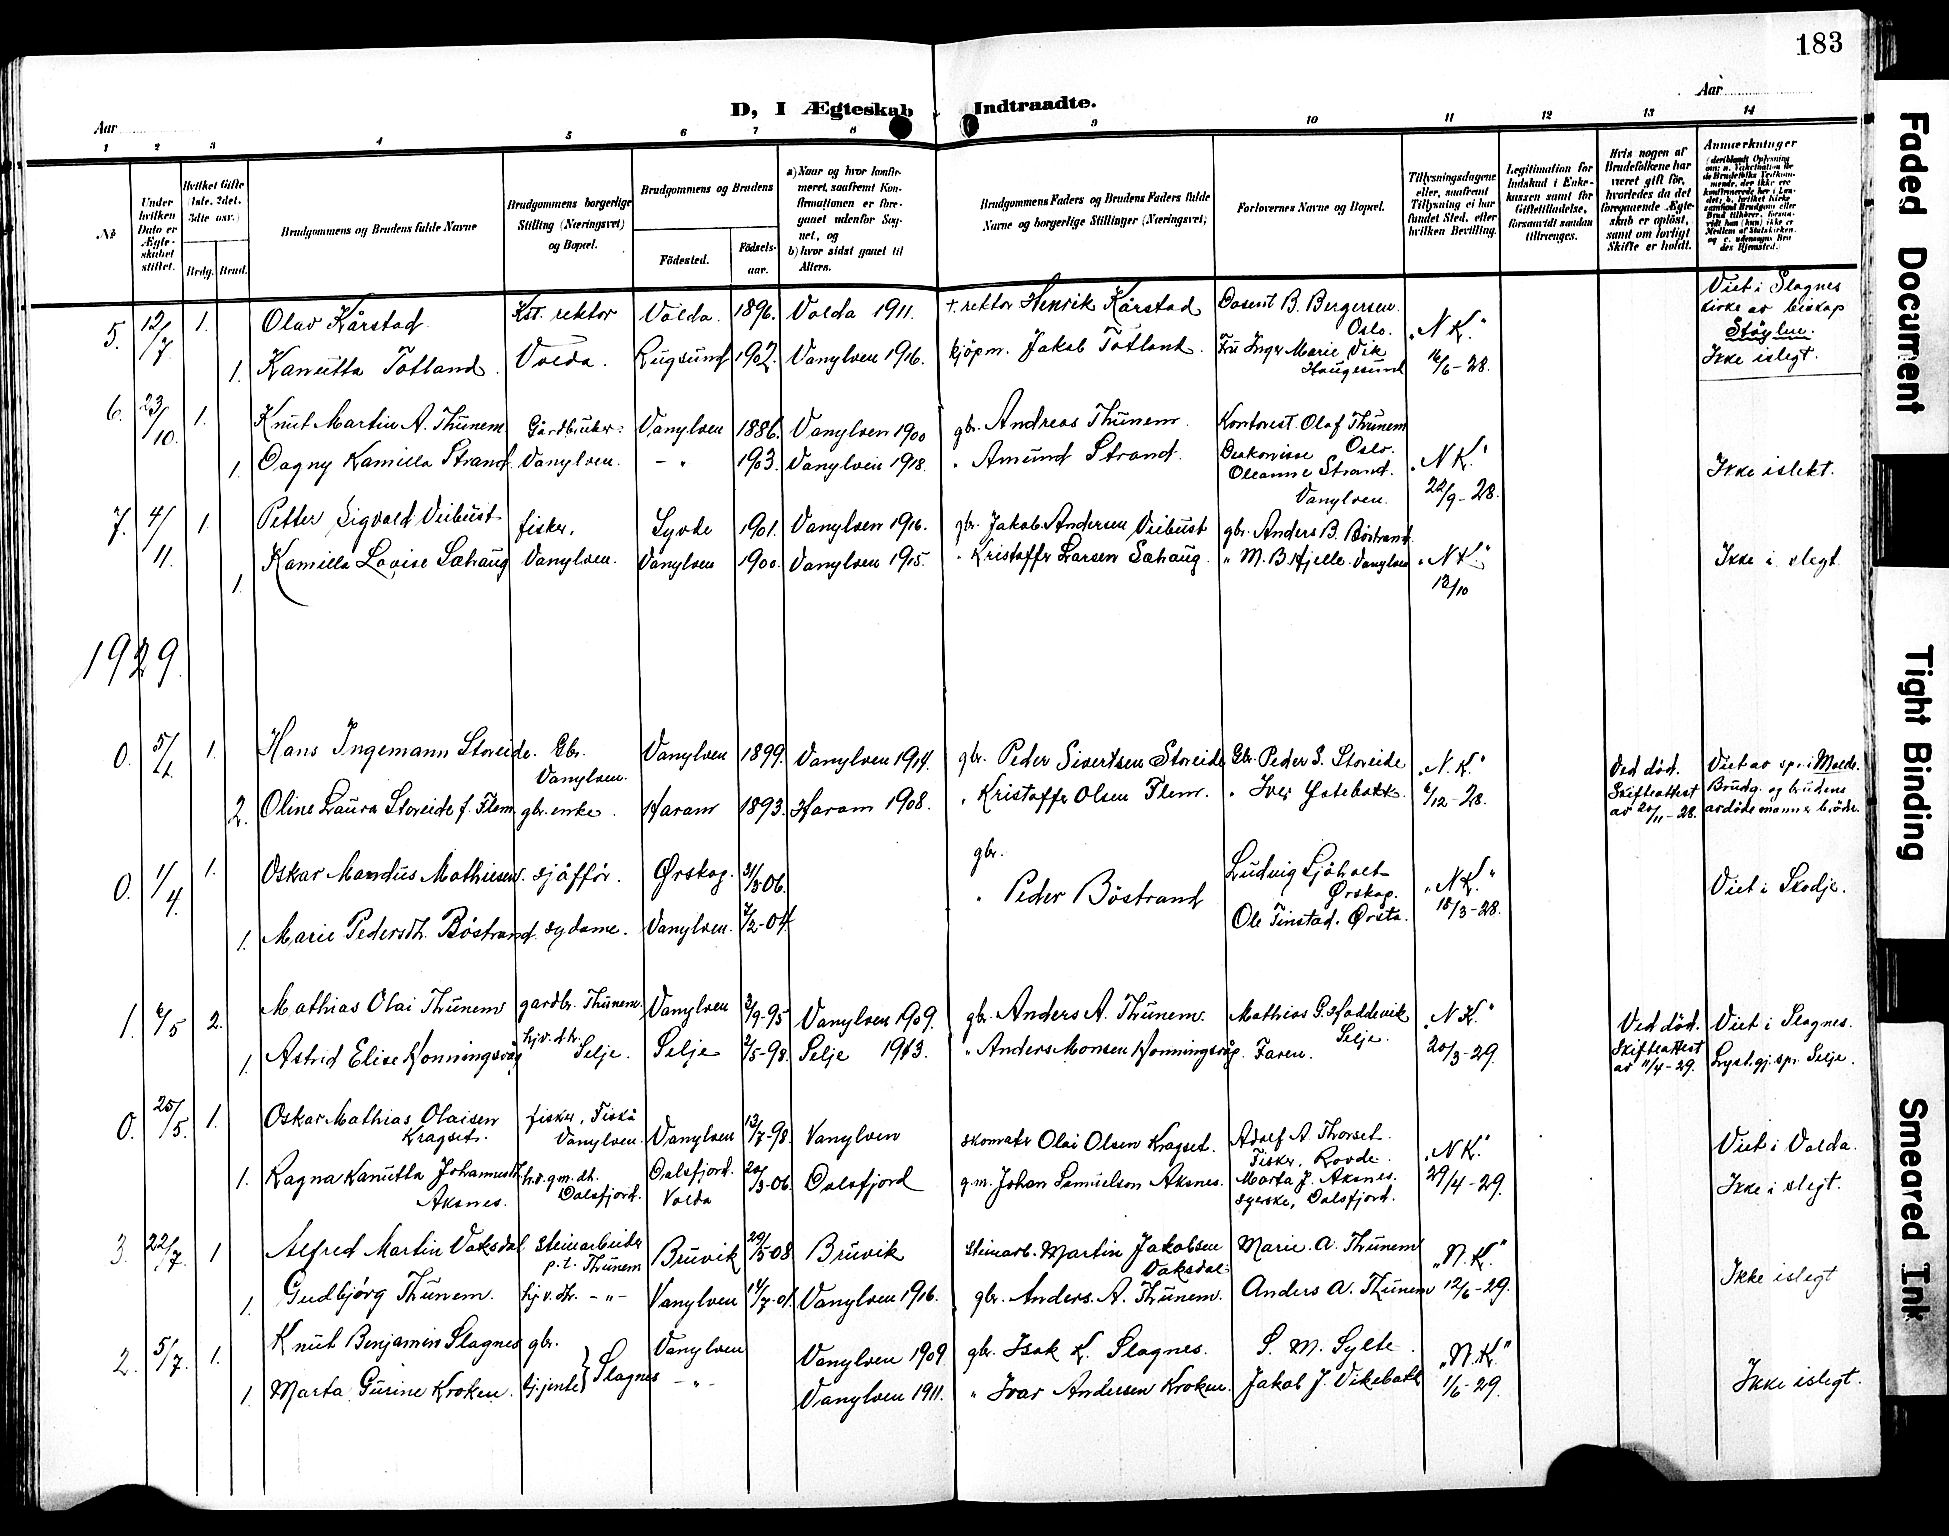 183
D, I Ægteskab Indtraadte.
Aar
Aar
1 2 3 4 5 6 7 8 9 10 11 12 13 14
No
Under hvilken Dato er Ægteskabet stiftet.
Hvilket Gifte (1ste, 2det, 3die osv.)
Brdg. Brud.
Brudgommens og Brudens fulde Navne
Brudgommens borgerlige Stilling (Næringsvei) og Bopæl.
Brudgommens og Brudens
Fødested. Fødselsaar.
a) Naar og hvor konfirmeret, saafremt Konfirmationen er foregaaet udenfor Sognet, og
b) hvor sidst gaaet til Alters.
Brudgommens Faders og Brudens Faders fulde Navne og borgerlige Stillinger (Næringsvei)
Forlovernes Navne og Bopæl.
Tillysningsdagene eller, saafremt Tillysning ei har fundet Sted, efter hvilken Bevilling.
Legitimation for Indskud i Enkekassen samt for Giftetilladelse, forsaavidt saadan tiltrænges.
Hvis nogen af Brudefolkene har været gift før, hvorledes da det foregaaende Ægteskab er opløst, samt om lovligt Skifte er holdt.
Anmærkninger
5. 12/7 1. Olav Kårstad Kst. rektor Volda. 1896. Volda 1911. + rektor Henrik Kårstad Dosent B. Bergersen Oslo. "N.K." Viet i Slagnes kirke av biskop Støylen.
1. Kanutta Totland. Volda. Rugsund 1902. Vanylven 1916. kjøpm. Jakob Totland. Fru Inger Marie Vik Haugesund 16/6-28. Ikke islegt.
6. 23/10. 1. Knut Martin A. Thunem Gårdbruker. Vanylven 1886. Vanylven 1900 gbr. Andreas Thunem. Kontorist. Olaf Thunem Oslo.
1. Dagny Kamilla Strand Vanylven. - " 1903. Vanylven 1918. " Amund Strand. Diakonisse Oleanne Strand. Vanylven. "N.K." 22/9-28. Ikke islekt.
7. 4/11. 1. Petter Sigvald Viibust fisker, Syvde 1901. Vanylven 1916. gbr. Jakob Andersen Viibust gbr. Anders B. Böstrand
1. Kamilla Lovise Sæhaug Vanylven. Vanylven 1900. Vanylven 1915. " Kristoffer Larsen Sæhaug. " M. B. Hjelle. Vanylven "N.K." 12/10 Ikke i slegt
1929.
0. 5/1 1. Hans Ingemann Storeide. Gbr. Vanylven. Vanylven 1899. Vanylven 1914. gbr. Peder Sivertsen Storeide Gbr. Peder S. Storeide "N.K." Ved død. Viet av spr. i Molde.
2. Oline Laura Storeide f. Flem. gbr. enke. Haram 1893. Haram 1908. " Kristoffer Olsen Flem. " Iver Ystebakk. 6/12-28. Skifteattest av 20/11-28. Brudg. og brudens avdøde mann er brødre.
0. 1/4. 1. Oskar Mandius Mathiesen. sjåffør. Ørskog. 31/3-06. gbr. Ludvig Sjöholt Ørskog. "N.K." Viet i Skodje.
1. Marie Pedersdt. Böstrand. sydame. Vanylven. 7/2-04 " Peder Böstrand Ole Finstad. Ørsta. 18/3-28.
1. 6/5 2. Mathias Olai Thunem gardbr. Thunem. Vanylven 3/9-95 Vanylven 1909. gbr. Anders A. Thunem. Mathias G. Hoddevik Selje. "N.K." Ved død. Viet i Slagnes.
1. Astrid Elise Honningsvåg hjv. dtr. Selje. Selje 2/5-98. Selje 1913. " Anders Monsen Honningsvåg. Faren. 20/3-29. Skifteattest av 11/4-29. Lyst. gj. spr. Selje.
0. 25/5. 1. Oskar Mathias Olaisen Kragset. fisker, Fiskå Vanylven. Vanylven 13/7-98. Vanylven skomaker Olai Olsen Kragset. Adolf A. Thorset. Fisker, Rovde. "N.K." Viet i Volda.
1. Ragna Kanutta Johannesdt. Aksnes. h.v. g.m. dt. Dalsfjord. Dalsfjord. Volda 20/3-06. Dalsfjord g.m. Johan Samuelson Aksnes. Marta J. Aksnes. syerske, Dalsfjord. 29/4-29. Ikke i slegt.
3. 22/7. 1 Alfred Martin Vaksdal steinarbeider p.t. Thunem Bruvik 29/5-08 Bruvik Steinarb. Martin Jakobsen Vaksdal. Marie A. Thunem "N.K."
1. Gudbjørg Thunem. hjv. dtr. - " - Vanylven 14/7-01. Vanylven 1916. gbr. Anders A. Thunem. Anders A. Thunem 12/6-29. Ikke islegt
2. 5/7. 1. Knut Benjamin Slagnes gbr. Slagnes Vanylven Vanylven 1909 gbr. Isak K. Slagnes. S. M. Sylte. "N.K."
1. Marta Gurine Kroken. hj. jente - " - Vanylven 1911. " Ivar Andersen Kroken. Jakob J. Vikebakk 1/6-29. Ikke islegt.
Faded Document
Tight Binding
Smeared Ink